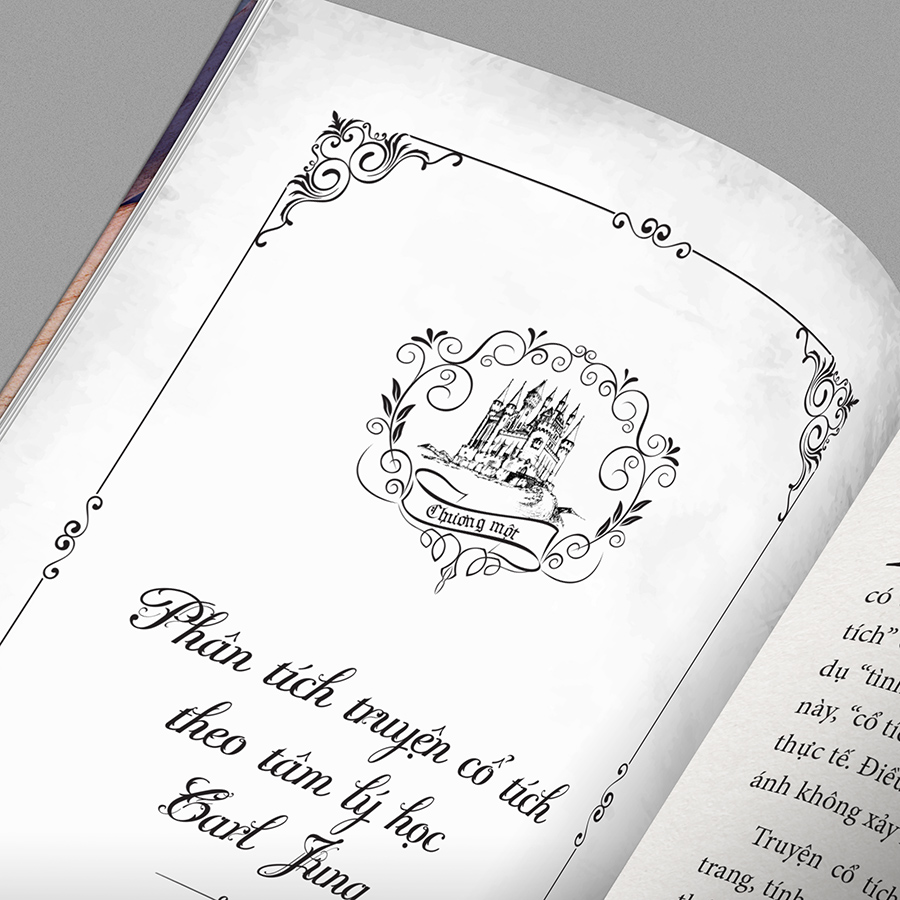 Chương một
Phân tích truyện cổ tích
theo tâm lý học
Carl Jung
có
tích”
dụ “tình
này, “cổ tíc
thực tế. Điều
ánh không xảy
Truyện cổ tích
trang, tính